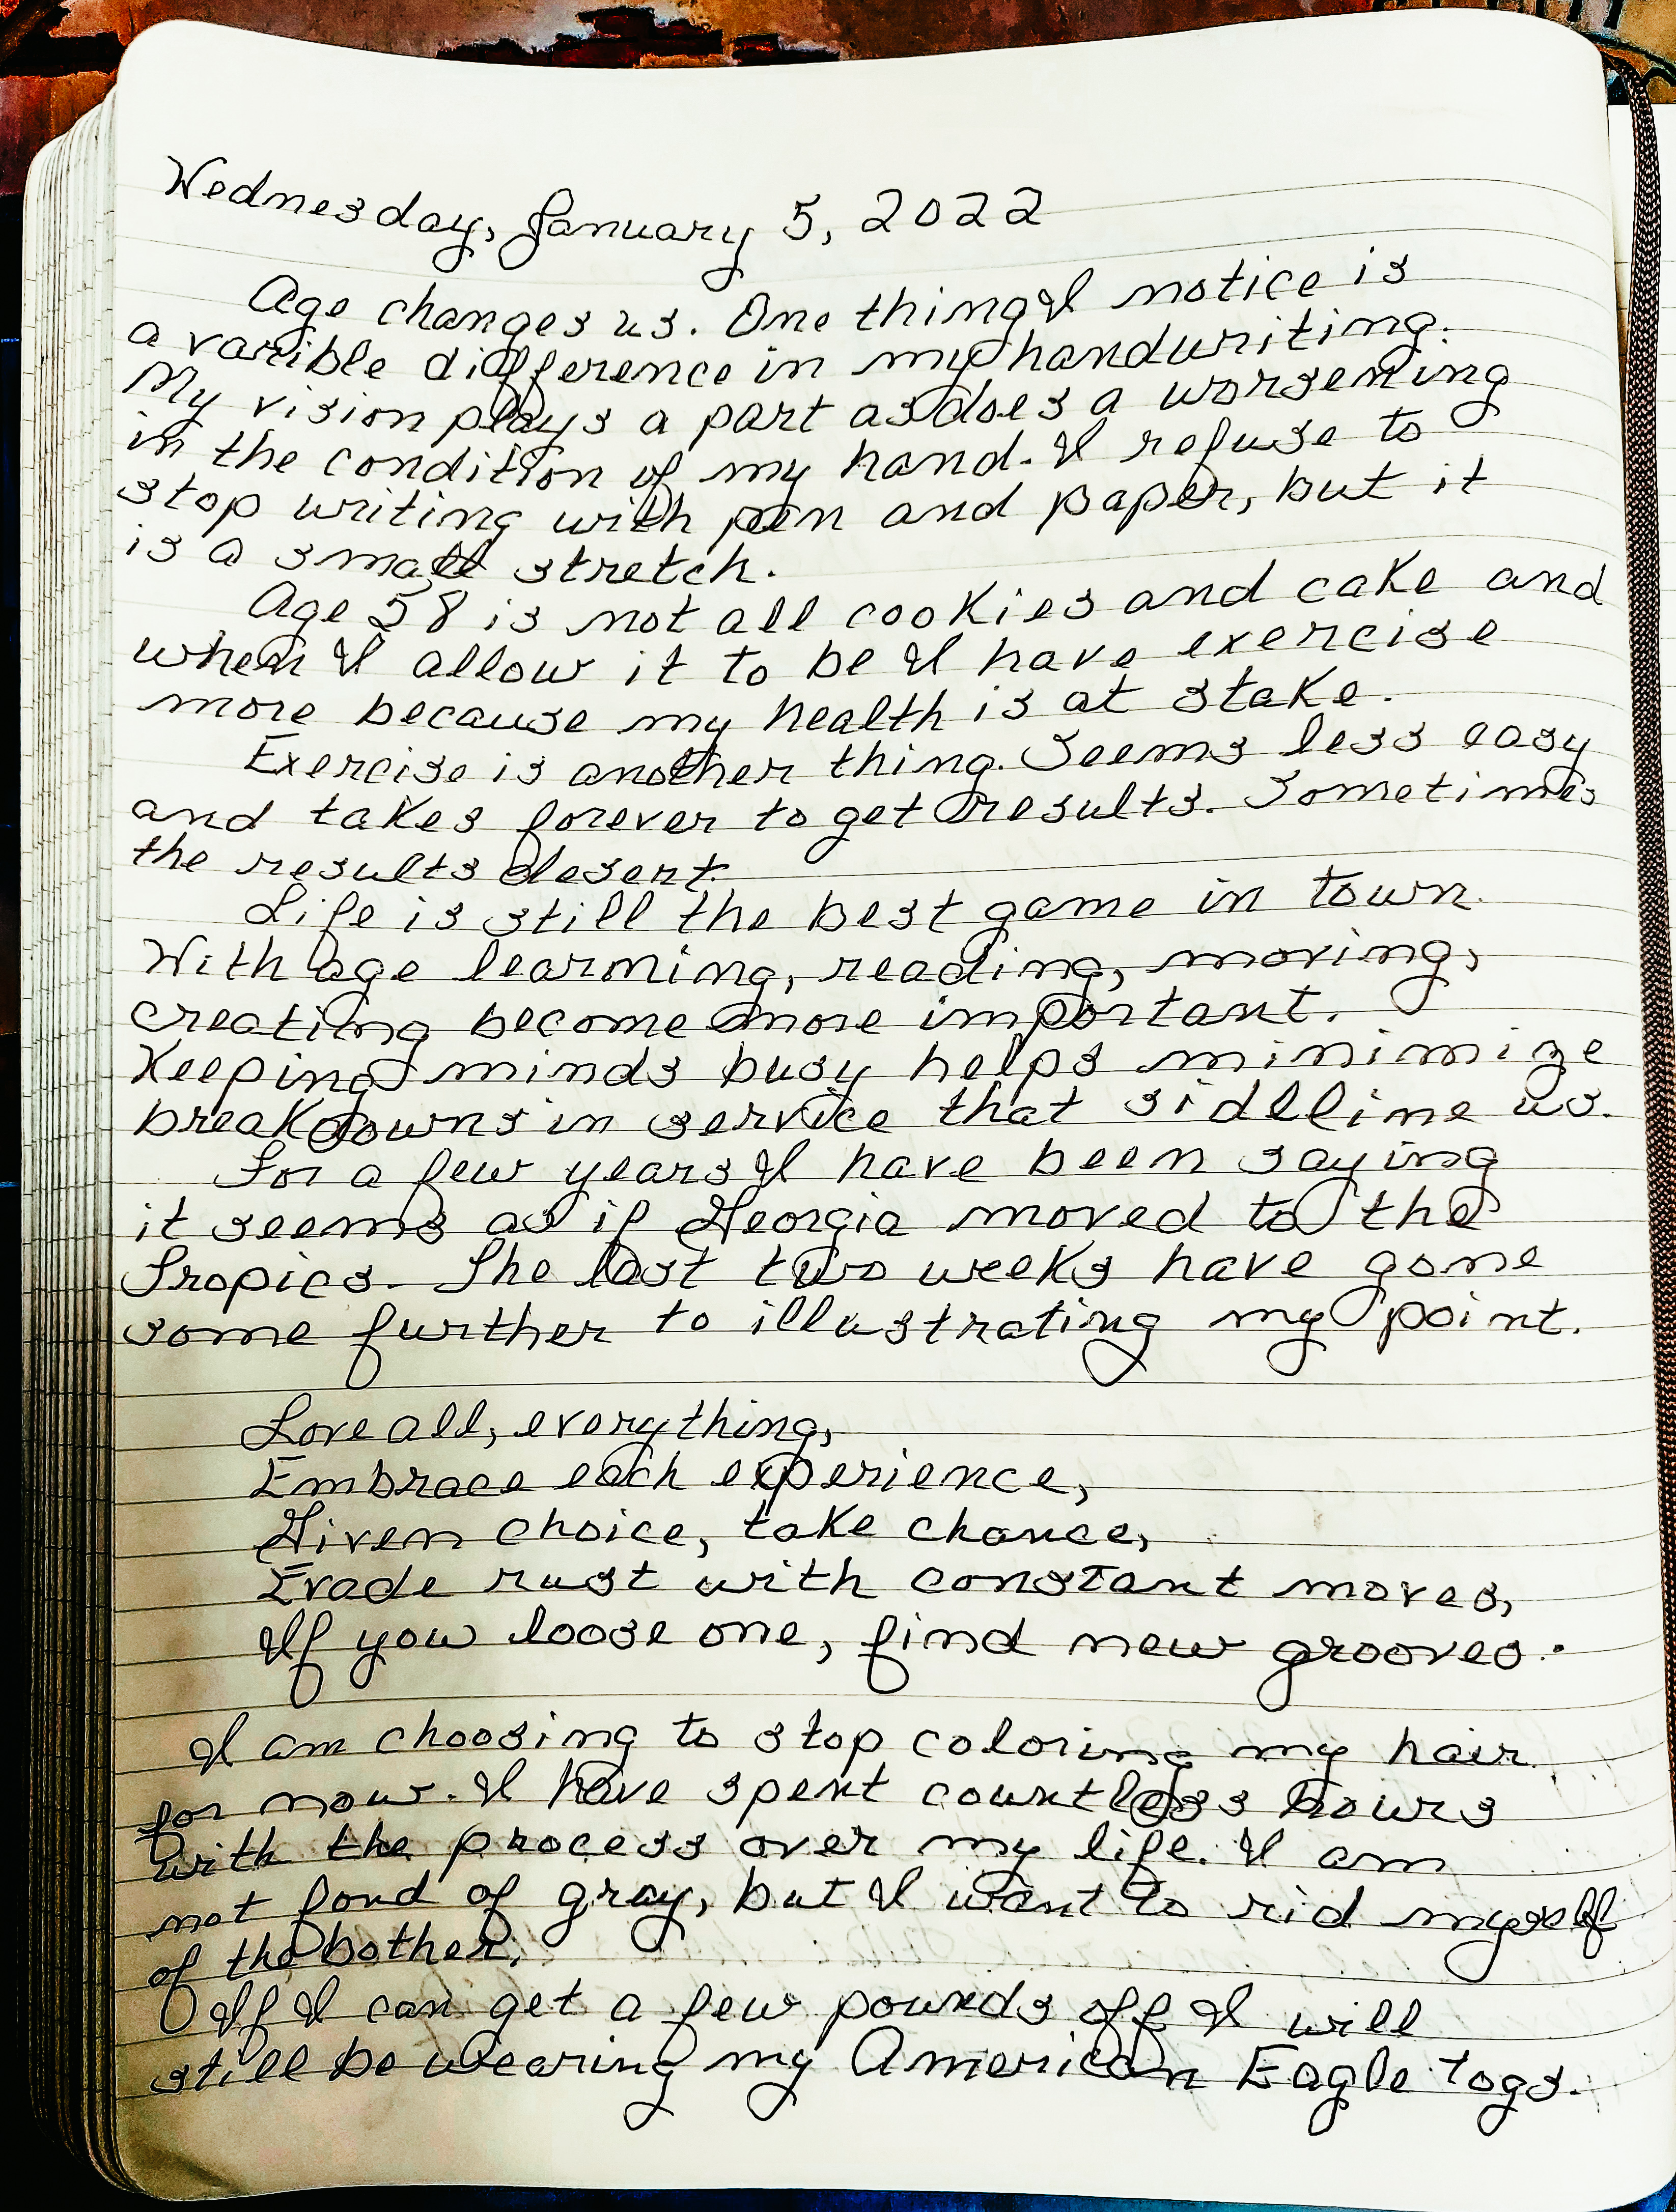 Wednesday, January 5, 2022
Age changes us. One thing I notice is
a varible difference in my handwriting.
My vision plays a part as does a worsening
in the condition of my hand. I refuse to
stop writing with pen and paper, but it
is a small stretch.
Age 58 is not all cookies and cake and
when I allow it to be I have exercise
more because my health is at stake.
Exercise is another thing. Seems less easy
and takes forever to get results. Sometimes
the results desert.
Life is still the best game in town.
With age learning, reading, moving,
creating become more important.
Keeping minds busy helps minimize
breakdowns in service that sidlline us.
For a few years I have been saying
it seems as if Georgia moved to the
Tropics. The last two weeks have gone
some further to illustrating my point.
Love all, everything,
Embrace each experience,
Given choice, take chance,
Evade rust with constant moves,
If you loose one, find new grooves.
I am choosing to stop coloring my hair
for now. I have spent countless hours
with the process over my life. I am
not fond of gray, but I want to rid myself
of the bother.
If I can get a few pounds off I will
still be wearing my American Eagle togs.